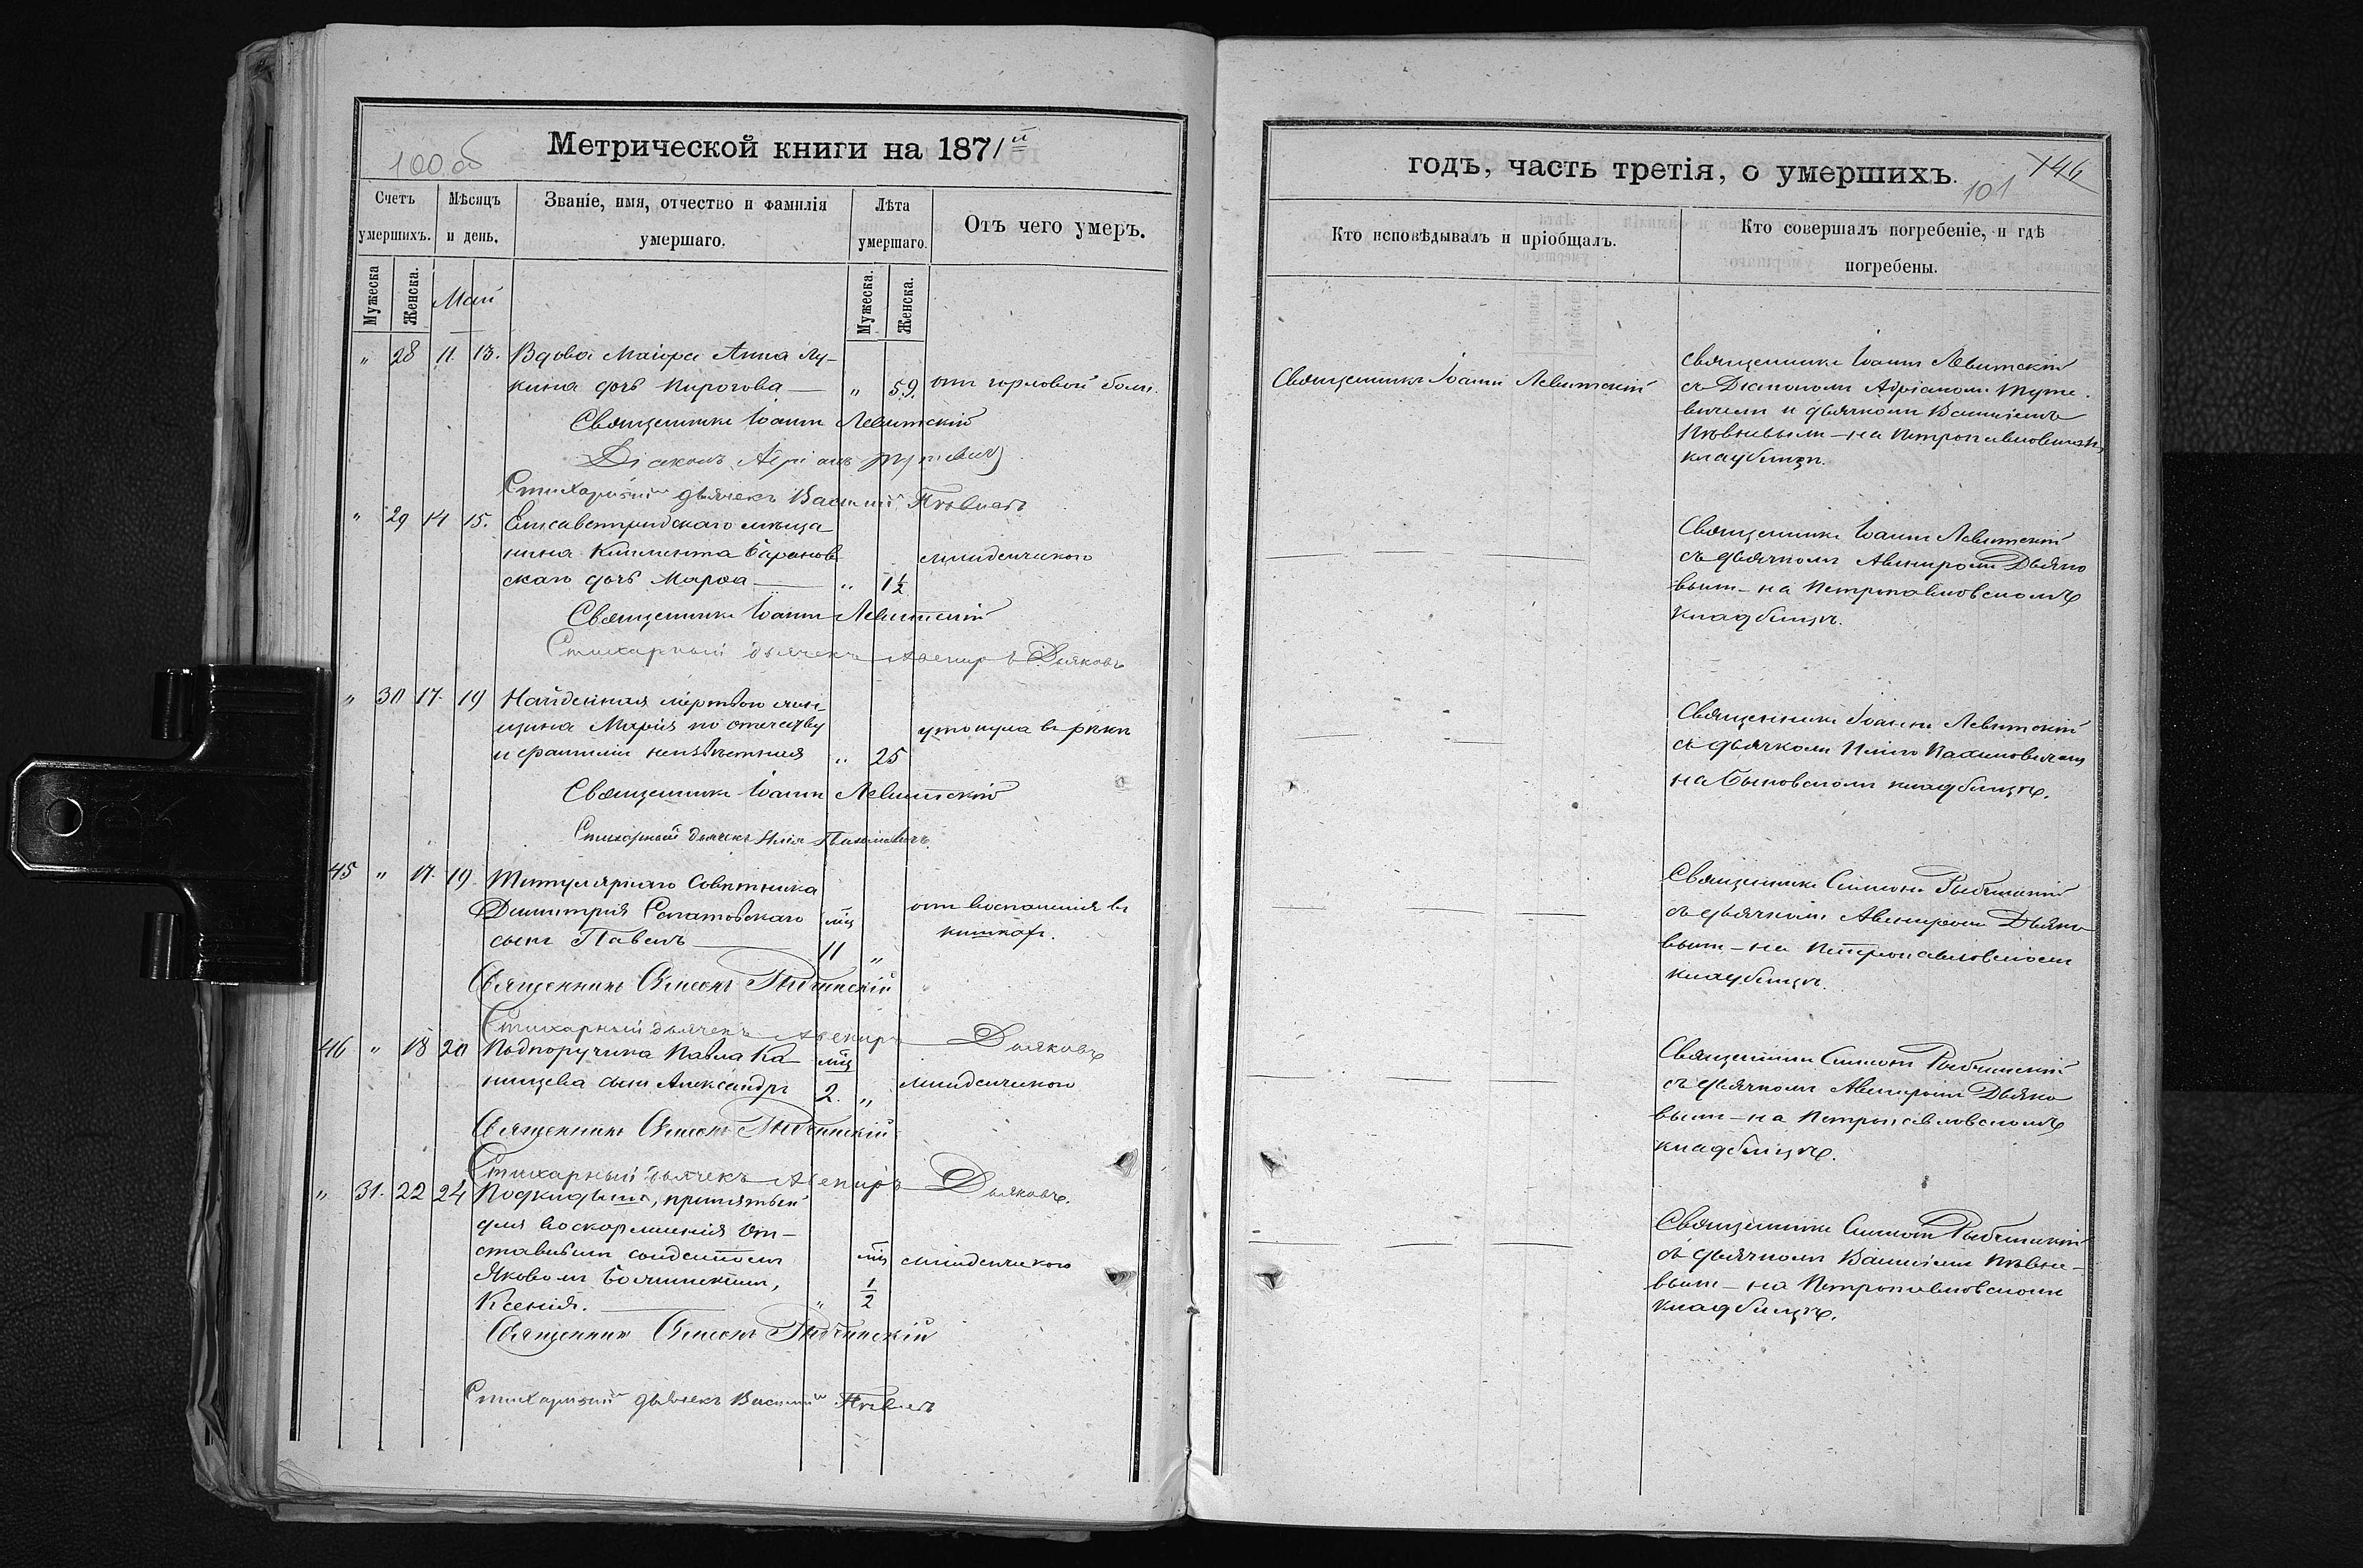 Метрической книги на 1871й
100 об
Счетъ умершихъ.
Мѣсяцъ и день.
Званіе, имя, отчество и фамилія умершаго.
Лѣта умершаго.
Отъ чего умеръ.
Мужеска
Женска.
Май
Мужеска.
Женска.
" 28 11 13. Вдова Маіора Анна Лу-
кина дочь Пирогова — " 59. отъ горловой боли.
Священникъ Іоаннъ Левитскій
Діаконъ Адріанъ
Стихарный дьячекъ Василій Пѣвневъ
" 29 14 15. Елисаветградскаго мѣща-
нина Климента Барановъ
младенческаго
скаго дочь Марѳа — " 1½
Священникъ Іоаннъ Левитскій
Стихарный дьячекъ Авениръ Дьяковъ
" 30 17 19 Найденная мертвою жен-
щина Марія по отечеству
утонула въ рѣкѣ
и фамиліи неизвѣстная " 25
Священникъ Іоаннъ Левитскій
Стихарный дьячекъ Илія Пахмовичъ
45 " 17 19 Титулярнаго Совѣтника
Димитрія Сопатовскаго мц отъ воспаленія въ
сынъ Павелъ — 11 " кишкахъ.
Священникъ Симеонъ Рыбчинскій
Стихарный дьячекъ Авениръ Дьяковъ
46 " 18 20 Подпоручика Павла Ка- мц
нищева сынъ Александръ 2. " младенческаго
Священникъ Симеонъ Рыбчинскій
Стихарный дьячекъ Авениръ Дьяковъ.
" 31. 22 24 Подкидышъ, принятый
для воскормленія От-
ставнымъ солдатомъ мц младенческаго
Яковомъ
Ксенія. — " ½
Священникъ Симеонъ Рыбчинскій
Стихарный дьячекъ Василій Пѣвневъ
годъ, часть третія, о умершихъ.
146
101
Кто исповѣдывалъ и пріобщалъ.
Кто совершалъ погребеніе, и гдѣ
погребены.
Священникъ Іоаннъ Левитскій
Священникъ Іоаннъ Левитскій
съ Діакономъ Адріаномъ
вичемъ и дьячкомъ Василіемъ
Пѣвневымъ — на Петропавловскомъ
кладбищѣ.
Священникъ Іоаннъ Левитскій
съ дьячкомъ Авениромъ Дьяко
вымъ — на Петропавловскомъ
кладбищѣ.
Священникъ Іоаннъ Левитскій
съ дьячкомъ Иліею Пахмовичемъ
на Быковскомъ кладбищѣ.
Священникъ Симеонъ Рыбчинскій
съ дьячкомъ Авениромъ Дьяко
вымъ — на Петропавловскомъ
кладбищѣ.
Священникъ Симеонъ Рыбчинскій
съ дьячкомъ Авениромъ Дьяко
вымъ — на Петропавловскомъ
кладбищѣ.
Священникъ Симеонъ Рыбчинскій
съ дьячкомъ Василіемъ Пѣвне-
вымъ — на Петропавловскомъ
кладбищѣ.